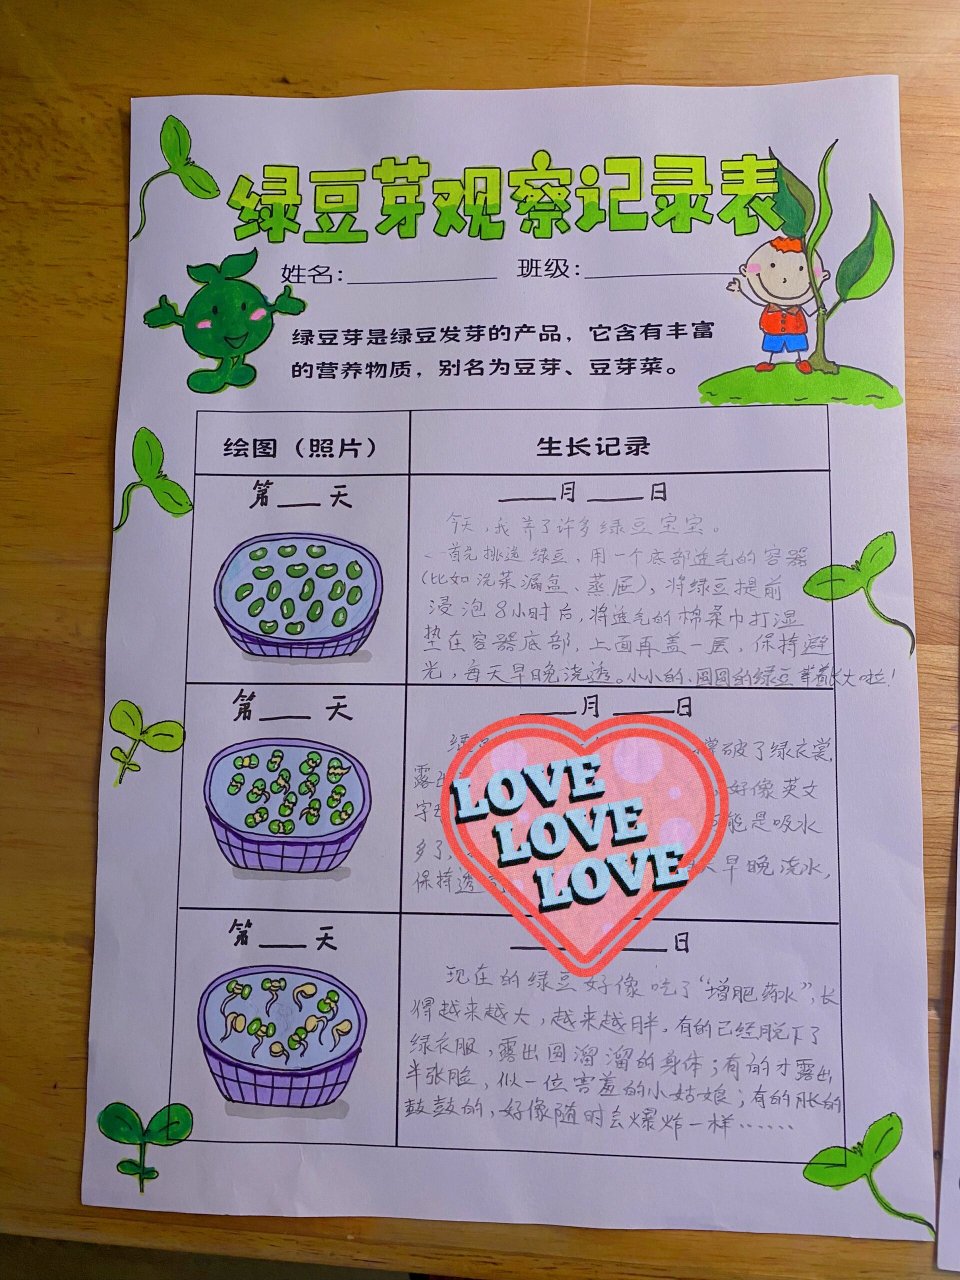 绿豆芽观察记录表
姓名：________ 班级：________
绿豆芽是绿豆发芽的产品，它含有丰富
的营养物质，别名为豆芽、豆芽菜。
绘图（照片） 生长记录
第___天 ____月____日
今天，我养了许多绿豆宝宝。
首先挑选绿豆，用一个底部透气的容器
(比如洗菜漏盆、蒸屉)，将绿豆提前
浸泡8小时后，将透气的棉柔巾打湿
垫在容器底部，上面再盖一层，保持避
光，每天早晚浇透。小小的、圆圆的绿豆 长大啦！
第___天 ____月____日
撑破了绿衣裳，
露出 好像英文
字母 能是吸水
多了， 早晚浇水，
保持透气
LOVE
LOVE
LOVE
第___天 日
现在的绿豆好像吃了“增肥药水”，长
得越来越大，越来越胖，有的已经脱下了
绿衣服，露出圆溜溜的身体；有的才露出
半张脸，似一位害羞的小姑娘；有的胀的
鼓鼓的，好像随时会爆炸一样……